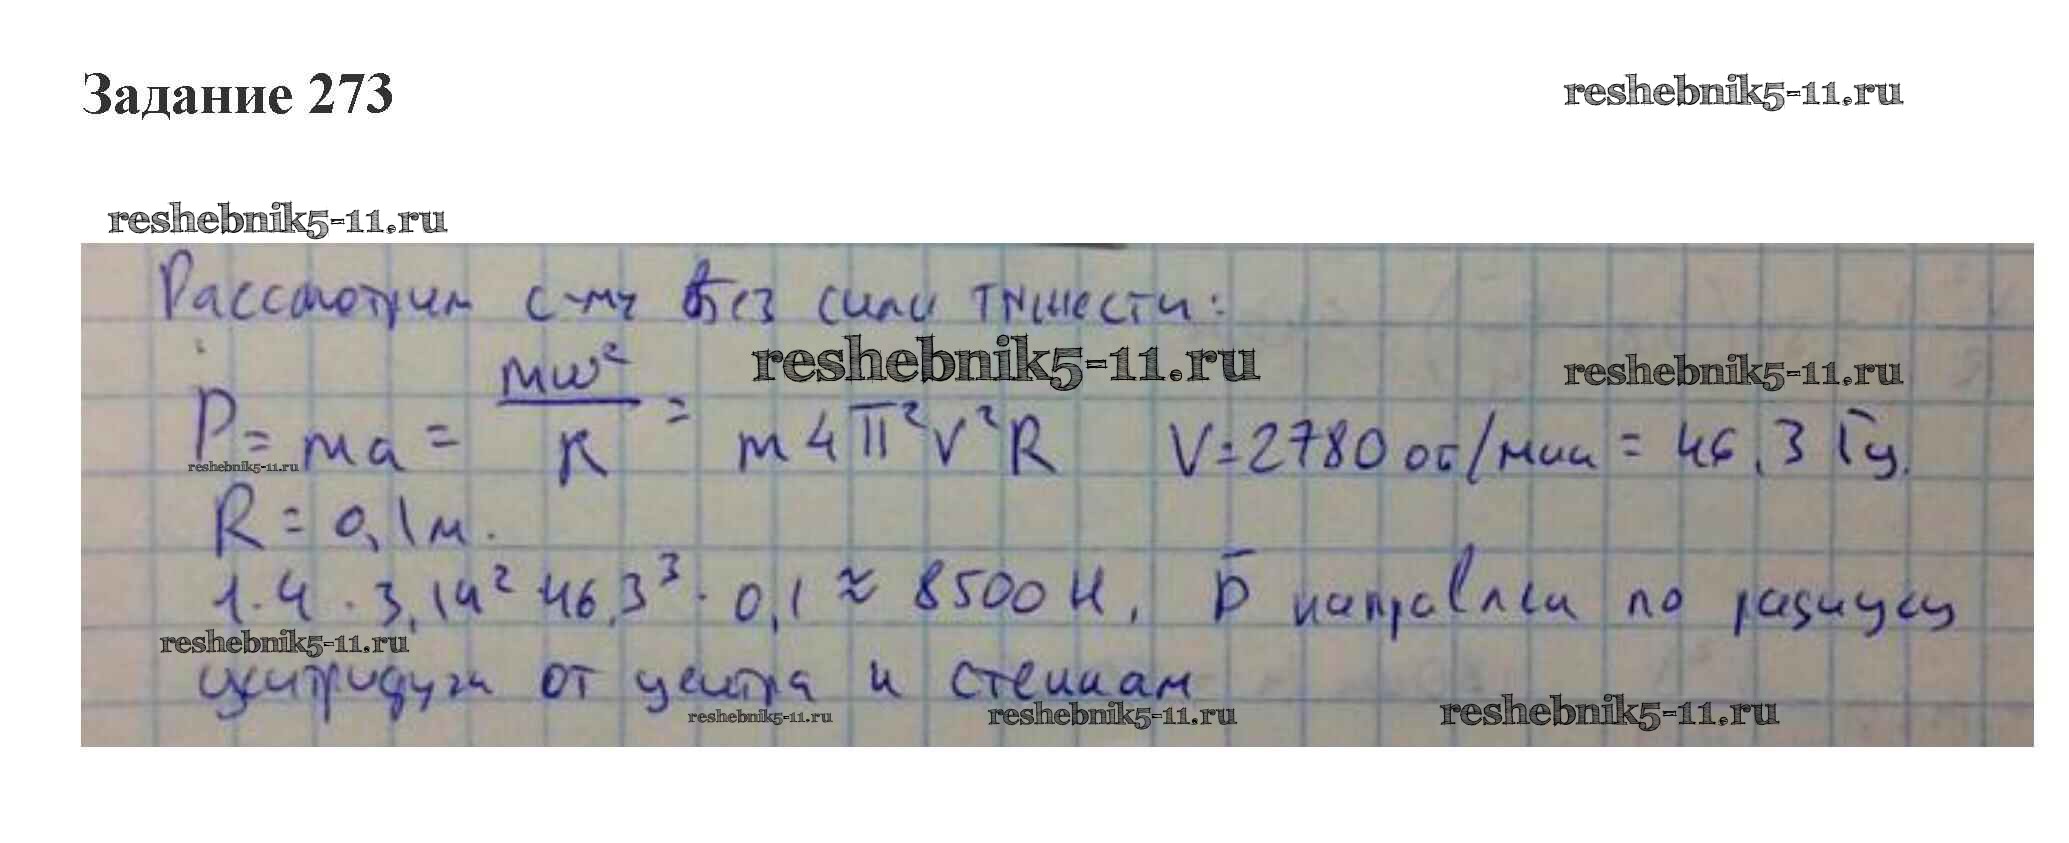 Задание 273
reshebnik5-11.ru
reshebnik5-11.ru
Рассмотрим с-му без силы тяжести:
reshebnik5-11.ru
reshebnik5-11.ru
P = ma = mω²/R = m4π²ν²R   ν = 2780 об/мин = 46,3 Гц.
reshebnik5-11.ru
R = 0,1 м.
1·4·3,14²·46,3³·0,1 ≈ 8500 Н, P̅ направлен по радиусу
reshebnik5-11.ru
центрифуги от центра к стенкам
reshebnik5-11.ru
reshebnik5-11.ru
reshebnik5-11.ru